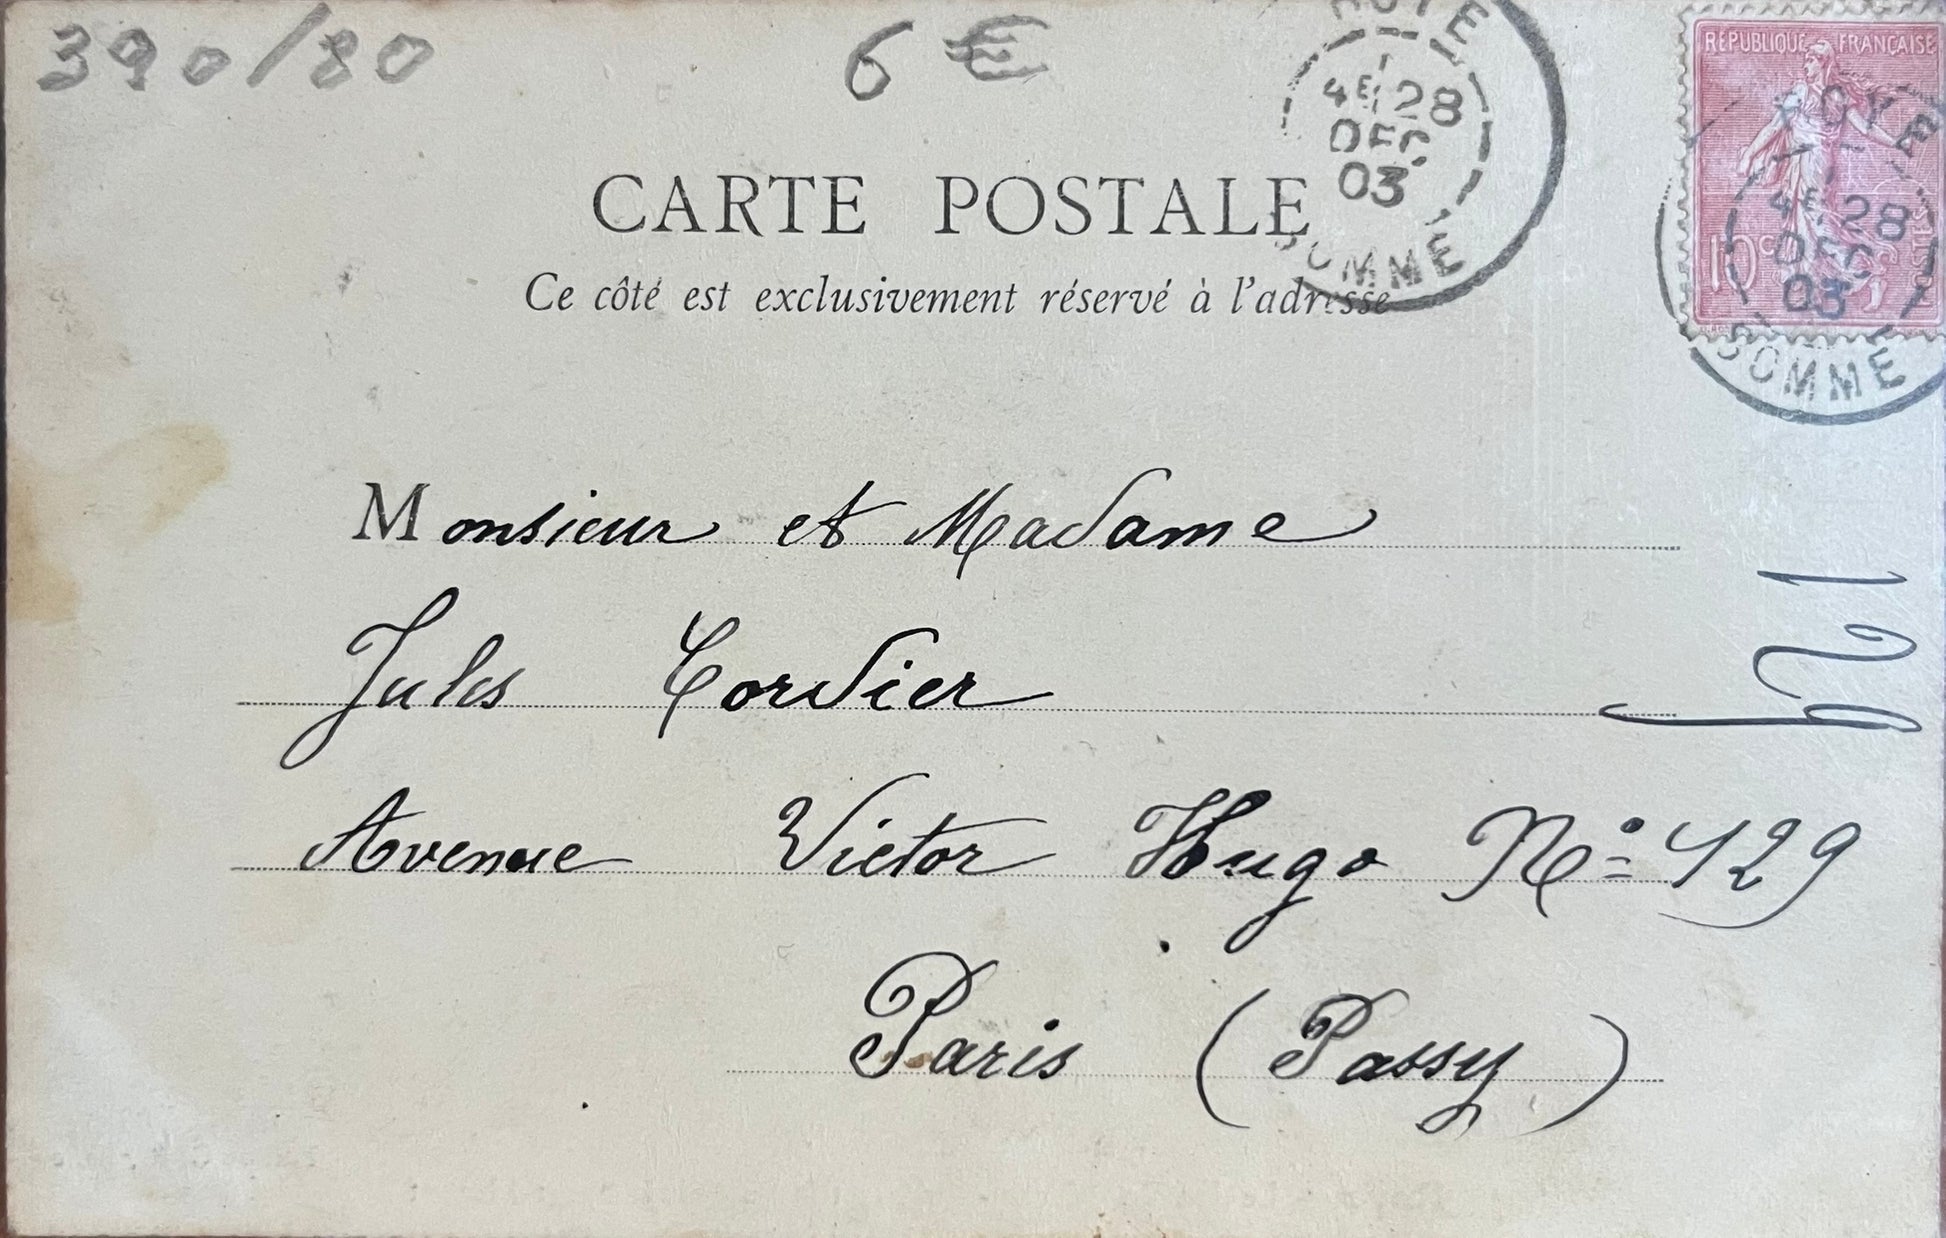 390/80
6 €
ROYE
4E 28
DEC.
03
SOMME
REPUBLIQUE FRANÇAISE
10c
ROYE
4E 28
DEC
03
SOMME
CARTE POSTALE
Ce côté est exclusivement réservé à l'adresse
Monsieur et Madame
Jules Cordier
Avenue Victor Hugo No = 129
Paris (Passy)